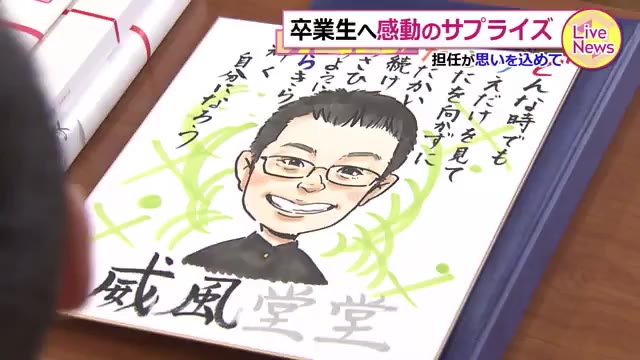 卒業生へ感動のサプライズ
担任が思いを込めて
Live News
んな時でも
えだけを見て
たを向かずに
たかい
続け
さひ
ように
きら
く
自分になろう
威風堂堂